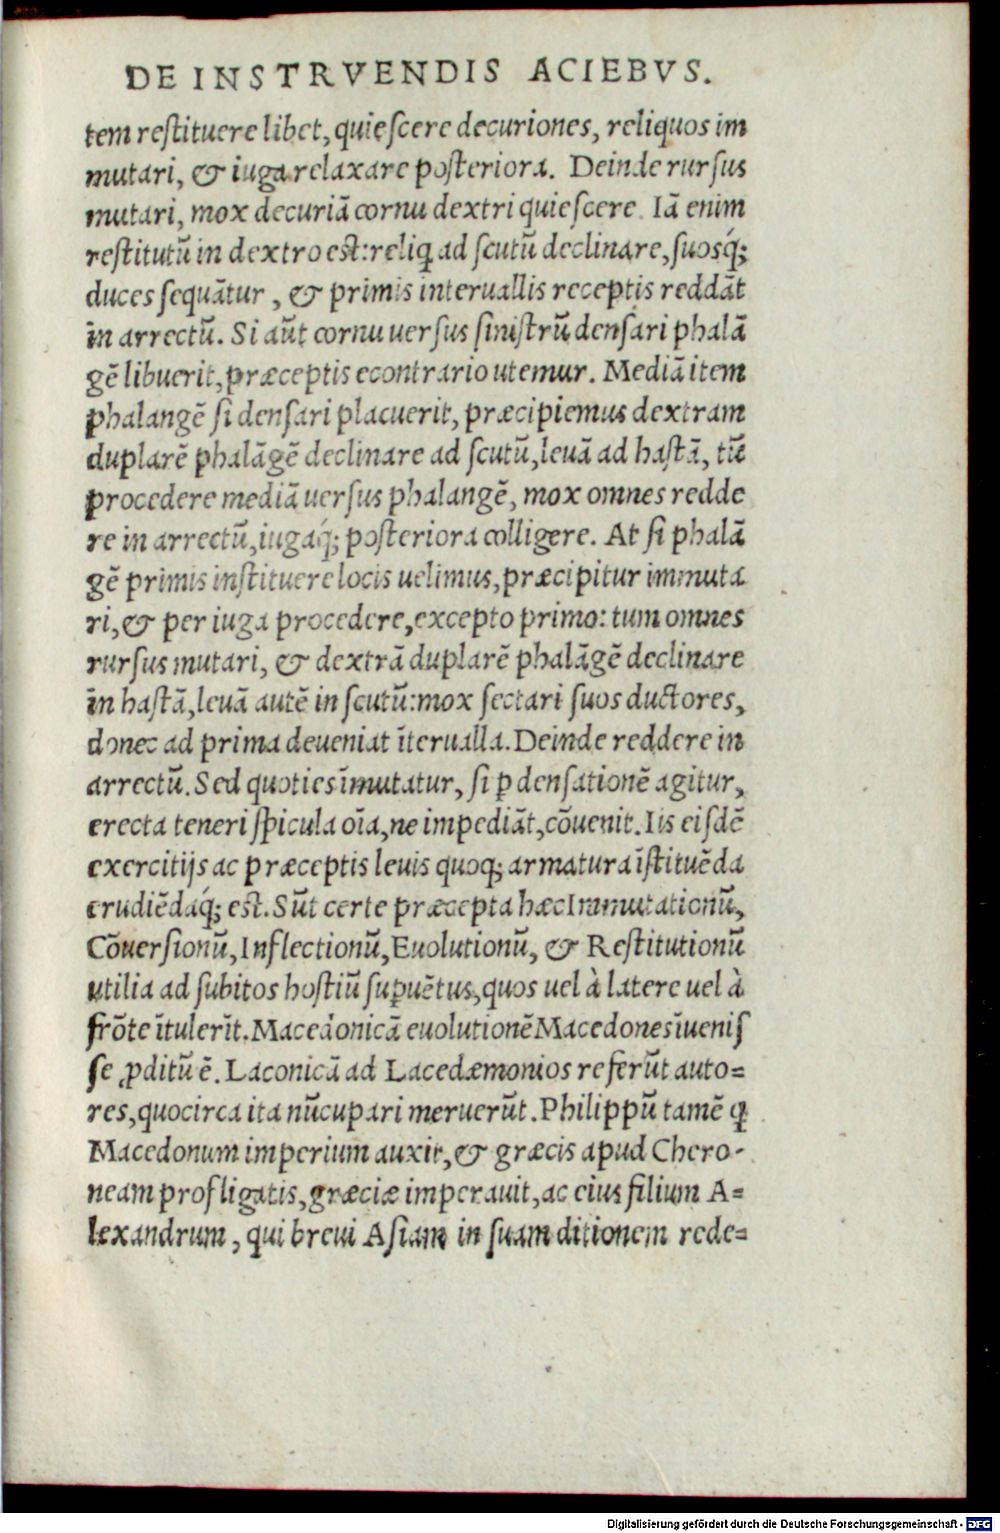 DE INSTRVENDIS ACIEBVS.
tem reſtituere libet, quieſcere decuriones, reliquos im
mutari, & iuga relaxare poſteriora. Deinde rurſus
mutari, mox decuriā cornu dextri quieſcere. Iā enim
reſtitutū in dextro eſt: reliq̨ ad ſcutū declinare, ſuosq́;
duces ſequātur, & primis interuallis receptis reddāt
īn arrectū. Si aūt cornu uerſus ſiniſtrū denſari phalā
gē libuerit, præceptis econtrario utemur. Mediā item
phalangē ſi denſari placuerit, præcipiemus dextram
duplarē phalāgē declinare ad ſcutū, leuā ad haſtā, tū
procedere mediā uerſus phalangē, mox omnes redde
re in arrectū, iugaq́; poſteriora colligere. At ſi phalā
gē primis inſtituere locis uelimus, præcipitur immuta
ri, & per iuga procedere, excepto primo: tum omnes
rurſus mutari, & dextrā duplarē phalāgē declinare
īn haſtā, leuā autē in ſcutū: mox ſectari ſuos ductores,
donec ad prima deueniat īterualla. Deinde reddere in
arrectū. Sed quoties īmutatur, ſi ꝑ denſationē agitur,
erecta teneri ſpicula oīa, ne impediāt, cōuenit. Iis eiſdē
exercitijs ac præceptis leuis quoq; armatura īſtituēda
erudiēdaq́; eſt. Sūt certe præcepta hæc Immutationū,
Cōuerſionū, Inflectionū, Euolutionū, & Reſtitutionū
utilia ad ſubitos hoſtiū ſuꝑuētus, quos uel à latere uel à
frōte ītulerīt. Macedonicā euolutionē Macedones īueniſ
ſe ꝓditū ē. Laconicā ad Lacedæmonios referūt auto=
res, quocirca ita nūcupari meruerūt. Philippū tamē q̨
Macedonum imperium auxit, & græcis apud Chero-
neam profligatis, græciæ imperauit, ac eius filium A=
lexandrum, qui breui Aſiam in ſuam ditionem rede=
Digitalisierung gefördert durch die Deutsche Forschungsgemeinschaft - DFG